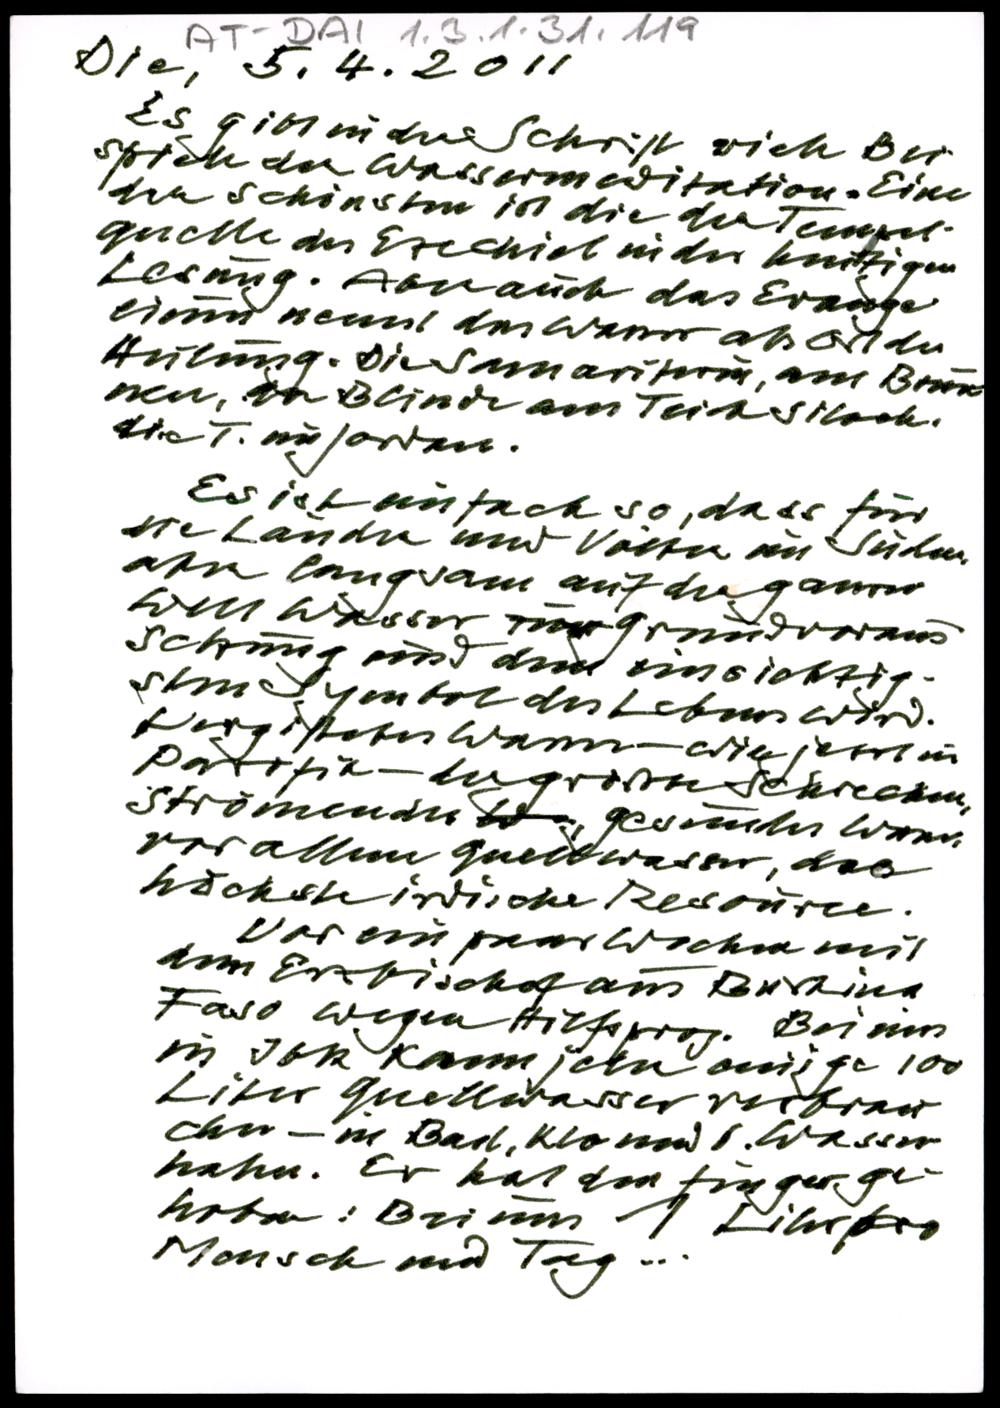 AT-DAI 1.3.1.31.119
Die, 5.4.2011
Es gibt in der Schrift viele Bei-
spiele der Wassermeditation. Eine
der schönsten ist die der Tempel-
quelle des Ezechiel in der heutigen
Lesung. Aber auch das Evange
lium nennt das Wasser als Ort der
Heilung. Die Samariterin, am Brun
nen, der Blinde am Teich Siloah.
die T. im Jordan.
Es ist einfach so, dass für
die Länder und Völker im Süden,
aber langsam auf der ganzen
Welt Wasser zur Grundvoraus
setzung und dem einsichtig-
sten Symbol des Lebens wird.
Vergiftetes Wasser – wie jetzt im
Pazifik – der größte Schrecken,
Strömendes, gesundes Wasser,
vor allem Quellwasser, das
höchste irdische Ressource.
Vor ein paar Wochen mit
dem Erzbischof aus Burkina
Faso wegen Hilfsproj. Bei uns
in Ibk kann jeder einige 100
Liter Quellwasser verbrau
chen – in Bad, Klo und Wasser
hahn. Er hat den Finger ge-
hoben: Bei uns 1 Liter pro
Mensch und Tag ...